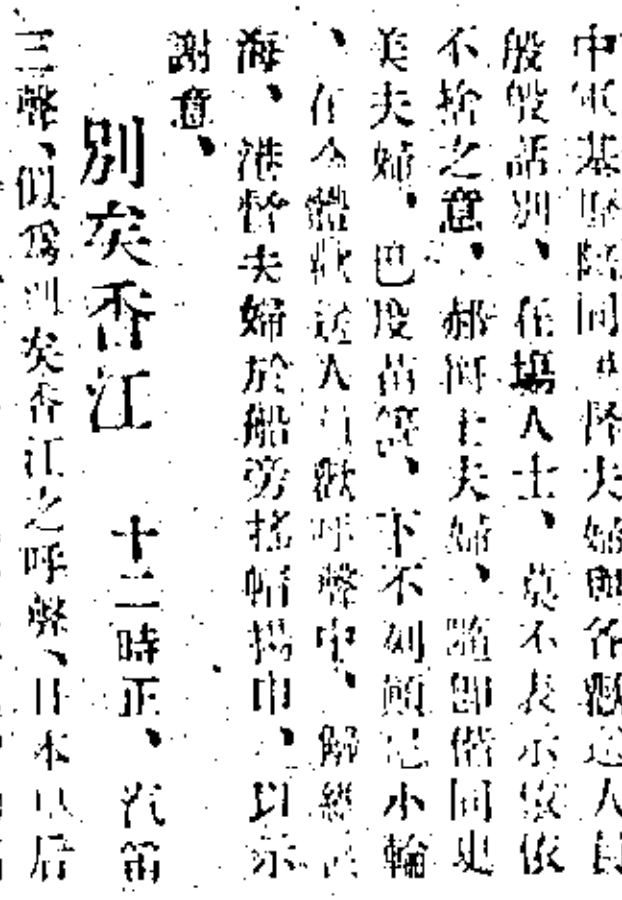 中軍基堅陪同 督夫婦與各歡送人員
般般話別、在場人士、莫不表示依依
不捨之意、郝爾上夫婦、隨卽偕同史
美夫婦、巴段苗等、下不列顛尼小輪
、在全體歡送人員歡呼聲中、解纜
海、港督夫婦於船旁搖帽揚巾、以示
謝意、
別矣香江 十二時正、汽笛
三聲、似爲別矣香江之呼聲、日本皇后